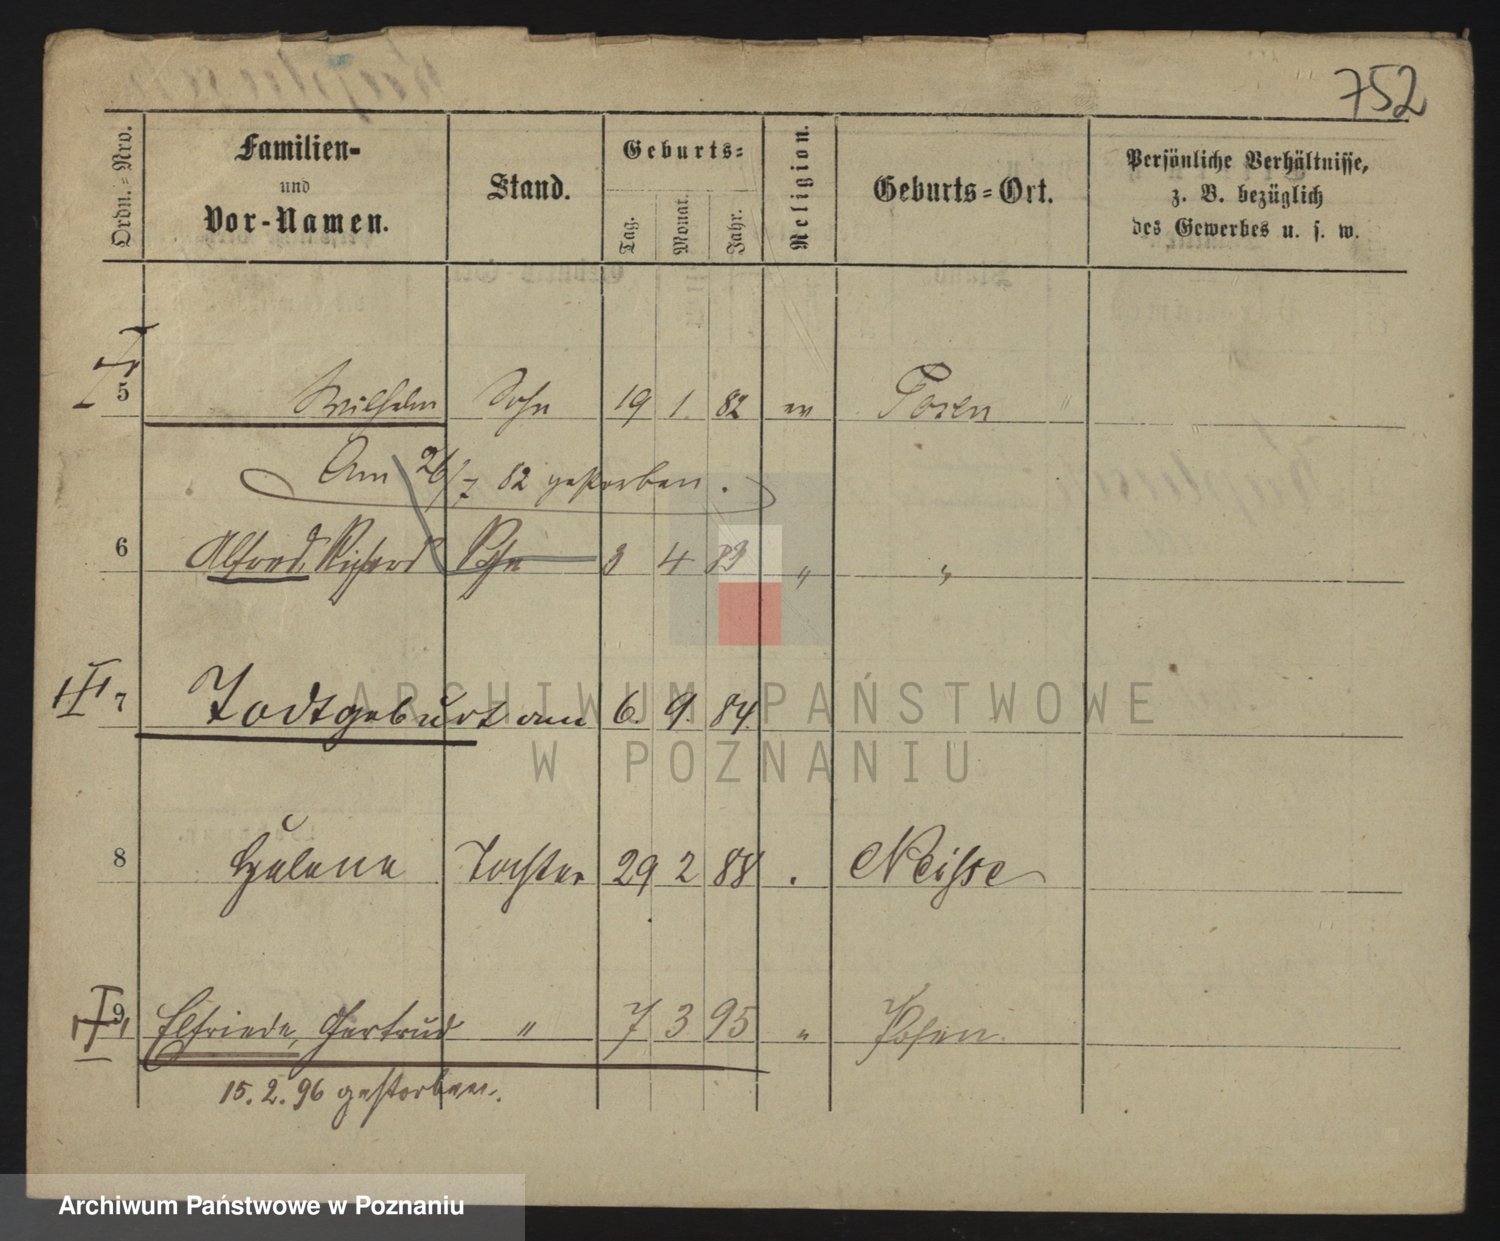 752
Ordn.=Nro.
Familien-
und
Vor-Namen.
Stand.
Geburts=
Tag.
Monat.
Jahr.
Religion.
Geburts=Ort.
Persönliche Verhältnisse,
z. B. bezüglich
des Gewerbes u. s. w.
5 Wilhelm Sohn 19 1. 82 ev Posen
Am 26/7 82 gestorben.
6 Alfred, Richard Sohn 3 4 83 " "
7 Todtgeburt am 6. 9. 84.
8 Helene Tochter 29 2 88 Neisse
9 Elfriede, Gertrud " 7 3 95 " Posen.
15. 2. 96 gestorben.
ARCHIWUM PAŃSTWOWE
W POZNANIU
Archiwum Państwowe w Poznaniu